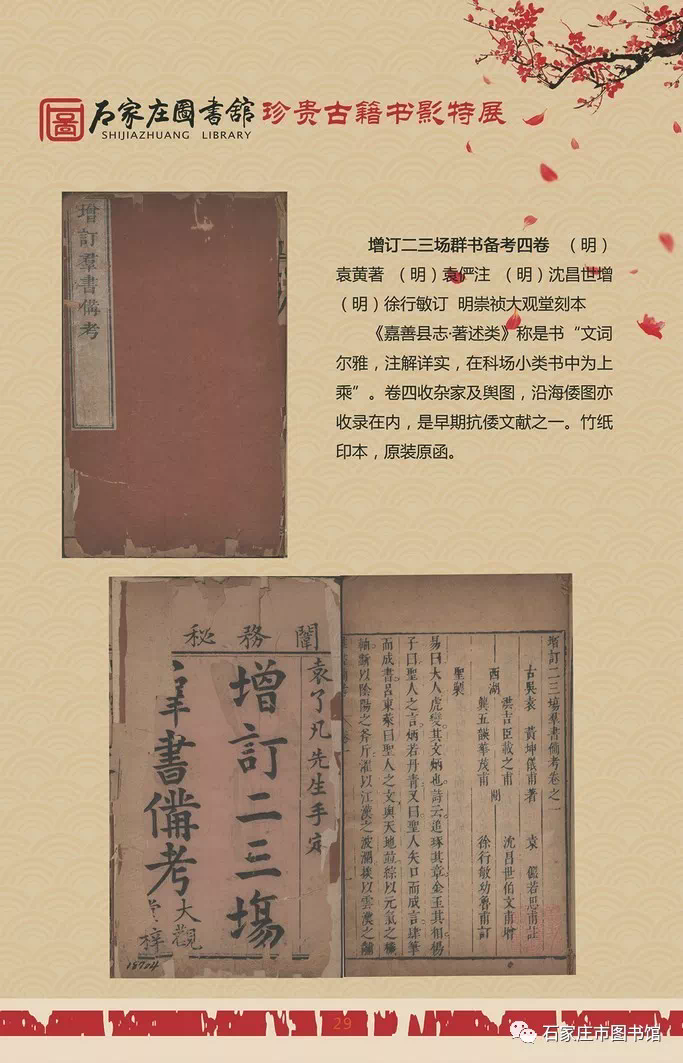 石家庄圖書舘 珍贵古籍书影特展
SHIJIAZHUANG LIBRARY
增订二三场群书备考四卷 （明）
袁黄著 （明）袁俨注 （明）沈昌世增
（明）徐行敏订 明崇祯大观堂刻本
《嘉善县志·著述类》称是书“文词
尔雅，注解详实，在科场小类书中为上
乘”。卷四收杂家及舆图，沿海倭图亦
收录在内，是早期抗倭文献之一。竹纸
印本，原装原函。
增訂羣書備考
闈務秘
袁了凡先生手定
增訂二三塲
羣書備考
大觀
堂梓
18724
增訂二三塲羣書備考卷之一
古吳袁 黃坤儀甫著 袁 儼若思甫註
西湖 洪吉臣載之甫 沈昌世伯文甫增
龔五韺華茂甫 閱 徐行敏功魯甫訂
聖製
易曰大人虎變其文炳也詩云追琢其章金玉其相揚
子曰聖人之言炳若丹青又曰聖人矢口而成言肆筆
而成書呂東萊曰聖人之文與天地並綜以元氣之機
軸斲以陰陽之斧斤濯以江漢之波瀾揆以雲漢之黼
29
石家庄市图书馆